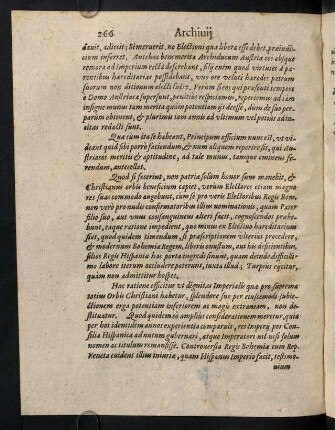 266 Archivij
dauit, adiecit; Si mereueris, ne Electioni quæ libera esse debet, præiudi-
cium inferret. Antehac benemerita Archiducum Austriæ eos absque
remora ad Imperium rectà deferebant, illi enim quod virtutes à pa-
rentibus hæreditarias possidebant, vices veluti hæredes patrum
suorum non ditionum electi sunt. Verum si eos qui præsenti tempore
è Domo Austriaca supersunt, penitius respiciamus, reperiemus ad tam
insigne munus tam merita quàm potentiam ijs deesse, cùm de suo per-
parùm obtineant, & plurimis iam annis ad vltimum vel potius ad ini-
tia redacti sunt.
Quæ cùm ita se habeant, Principum officium nunc est, vt vi-
deant quid sibi porrò faciendum, & num aliquem reperire sit, qui Au-
striacos meritis & aptitudine, ad tale munus, tamque eminens fe-
rendum, antecellat.
Quod si fecerint, non patria solùm honor suus manebit, &
Christianus orbis beneficium capiet, verùm Electores etiam magno-
res suas commodo augebunt, cum se pro veris Electoribus Regis Rom.
non verò pro audis confirmatoribus illius nominationis, quam Pater
filio suo, aut vnus consanguineus alteri facit, cognoscendos præbe-
bunt, eaque ratione impedient, quo minus ex Electiuo hæreditarium
fiat, quod quidem timendum, si præscriptionem vlterius procedere,
& modernum Bohemiæ Regem, liberis onustum, aut his deficientibus,
filios Regis Hispaniæ hac porta ingredi sinunt, quam deinde difficilli-
mo labore iterum occludere poterunt, iuxta illud; Turpius eijcitur,
quàm non admittitur hospes.
Hac ratione efficitur vt dignitas Imperialis quæ pro suprema
totius Orbis Christiani habetur, splendore suo per eiusmodi subie-
ctionem erga potentiam inferiorem ac magis extraneam, non de-
stituatur. Quod quidem eò ampliùs considerationem meretur, quia
per hos identidem annos experientia comparuit, res Imperij per Con-
silia Hispanica ad nutum gubernari, atque Imperatori nil nisi solum
nomen ac titulum remansisse. Controuersia Regis Bohemiæ cum Rep.
Veneta euidens illius iniuriæ, quam Hispanus Imperio facit, testimo-
nium